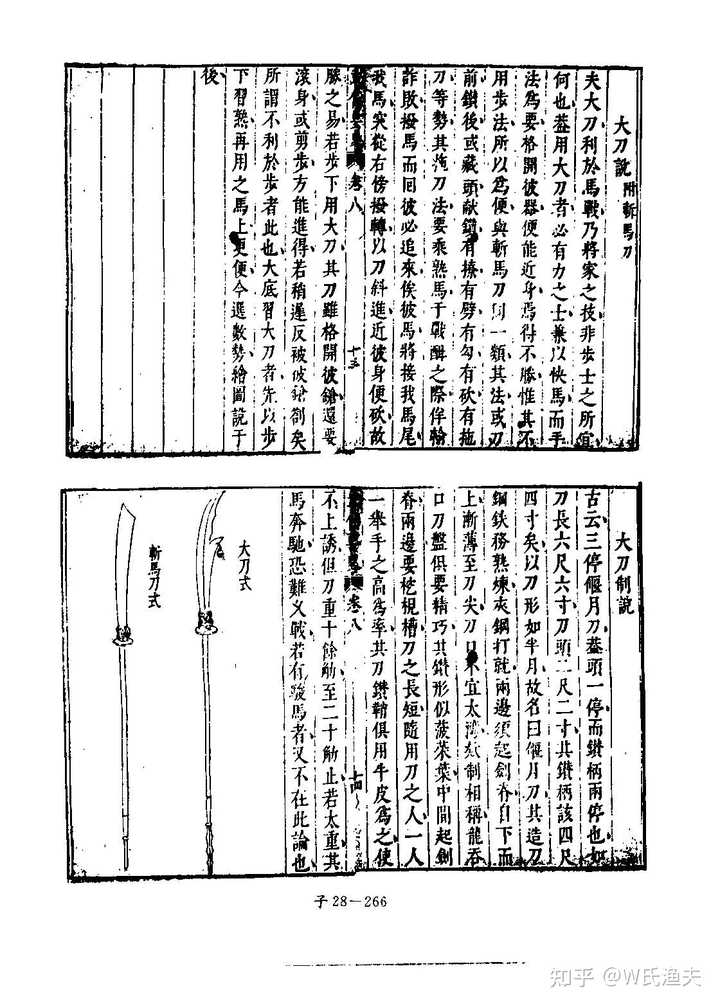 大刀說 附斬馬刀
夫大刀利於馬戰乃將家之技非步士之所宜
何也葢用大刀者必有力之士兼以快馬而手
法為要格開彼器便能近身焉得不勝惟其不
用步法所以為便與斬馬刀同一類其法或刀
前鑽後或藏頭献鑽有有劈有勾有砍有拖
刀等勢其拖刀法要乘熟馬于戰酣之際佯輸
詐敗撥馬而回彼必追來俟彼馬將接我馬尾
我馬突從右傍撥轉以刀斜進近彼身便砍故
卷八 十三
勝之易若步下用大刀其刀雖格開彼鎗還要
滚身或剪步方能進得若稍遲反被彼鎗劄矣
所謂不利於步者此也大底習大刀者先以步
下習熟再用之馬上更便今選數勢繪圖說于
後
大刀制說
古云三停偃月刀葢頭一停而鑽柄兩停也如
刀長六尺六寸刀頭二尺二寸其鑽柄該四尺
四寸矣以刀形如半月故名曰偃月刀其造刀
鋼鉄務熟煉夾鋼打就兩邊須起劍脊自下而
上漸薄至刀尖刀口宜太灣紋制相稱龍吞
口刀盤俱要精巧其鑽形似菠菜葉中間起劍
脊兩邊要槽刀之長短隨用刀之人一人
一舉手之高為率其刀鑽鞘俱用牛皮為之使
卷八 十四
不上誘但刀重十餘觔至二十觔止若太重其
馬奔馳恐難乂戰若有駿馬者又不在此論也
大刀式
斬馬刀式
子28－266
知乎 @W氏渔夫